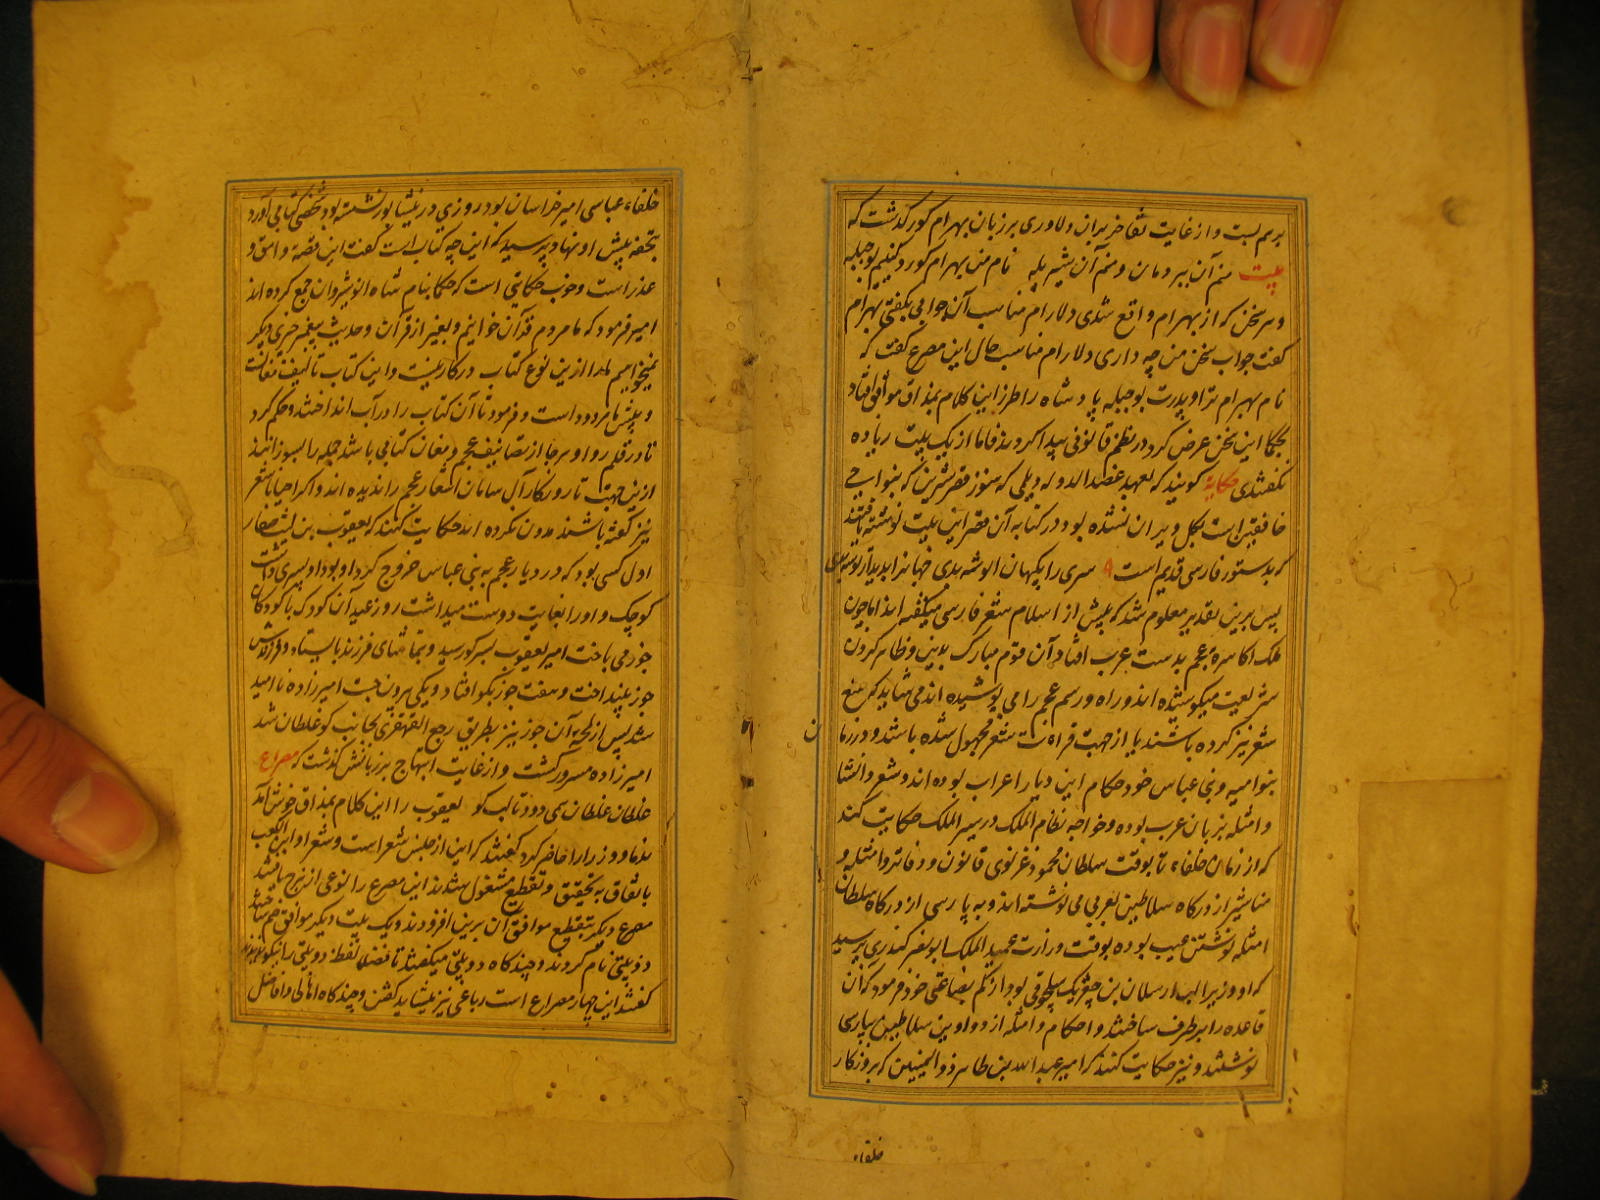 بربست و از غایت تفاخر بدان دلاوری بر زبان بهرام کور کذشت که
بیت منم آن ببر دمان و منم آن شیر یله نام من بهرام کور و کنیتم بوجبله
و هر سخن که از بهرام واقع شدی دلارام مناسب آن جوابی بکفتی بهرام
کفت جواب سخن من چه داری دلارام مناسب حال این مصرع کفت که
نام بهرام ترا و پدرت بوجبله پادشاه را طرز این کلام بمذاق موافق افتاد
بحکما این سخن عرض کرد در نظم قانونی پیدا کردند فاما از یک بیت زیاده
نکفتندی حکایة کویند که بعهد عضد الدوله دیلمی که هنوز قصر شیرین که بنواحی
خانقین است بکل ویران نشده بود در کتابه آن قصر این بیت نوشته یافتند
که بدستور فارسی قدیم است
پس برین تقدیر معلوم شد که پیش از اسلام شعر فارسی میکفته اند اما چون
ملک اکاسره عجم بدست عرب افتاد آن قوم مبارک بدین و ظاهر کردن
شریعت میکوشیده اند و راه و رسم عجم را می پوشیده اند می شاید که منع
شعر نیز کرده باشند یا از جهت شعر مجهول شده باشد و در زمان
بنو امیه و بنی عباس خود حکام این دیار اعراب بوده اند و شعر و انشا
و امثله بزبان عرب بوده و خواجه نظام الملک در سیر الملک حکایت کند
که از زمان خلفاء تا بوقت سلطان محمود غزنوی قانون و دفاتر و امثله و
مناشیر از درکاه سلاطین بعربی می نوشته اند و به پارسی از درکاه سلطان
امثله نوشتن عیب بوده بوقت وزارت عمید الملک ابو نصر کندری برسید
که او وزیر الب ارسلان بن چغربیک سلجوقی بود از کم بضاعتی خود فرمود که آن
قاعده را بر طرف ساختند و احکام و امثله از دواوین سلاطین بپارسی
نوشتند و نیز حکایت کنند که امیر عبد الله بن طاهر ذو الیمینین که بروزکار
خلفاء
خلفاء عباسی امیر خراسان بود روزی در نیشابور نشسته بود شخصی کتابی آورد
بتحفه پیش او نهاد پرسید که این چه کتاب است کفت این قصه وامق و
عذر است و خوب حکایتی است که حکما بنام شاه انوشیروان جمع کرده اند
امیر فرمود که ما مردم قرآن خوانیم و بغیر از قرآن و حدیث پیغمبر چیزی دیکر
نمیخواهیم ما را ازین نوع کتاب در کار نیست و این کتاب تالیف مغانست
و پیش ما مردود است و فرمود تا آن کتاب را در آب انداختند و حکم کرد
تا در قلمرو او هر جا از تصانیف عجم و مغان کتابی باشد جمله را بسوزانند
ازین جهت تا روزکار آل سامان اشعار عجم را ندیده اند و اکر احیانا شعر
نیز کفته باشند مدون نکرده اند حکایت کنند که یعقوب بن لیث صفار
اول کسی بود که در دیار عجم به بنی عباس خروج کرد او بود او پسری داشت
کوچک و او را بغایت دوست میداشت روز عید آن کودک با کودکان
جوز می باخت امیر یعقوب بسر کو رسید و بتماشای فرزند بایستاد و فرزندش
جوز بینداخت و هفت جوز بکو افتاد و یکی بیرون جست امیرزاده ناامید
شد پس از لمحه آن جوز نیز بطریق رجع القهقری بجانب کو غلطان شد
امیرزاده مسرور کشت و از غایت ابتهاج بر زبانش کذشت که مصراع
غلطان غلطان همی رود تا لب کو یعقوب را این کلام بمذاق خوش آمد
ندما و وزرا را حاضر کرد کفتند که این از جنس شعر است و شعرا و ابن الکعب
باتفاق به تحقیق و تقطیع مشغول شدند این مصرع را نوعی از هزج یافتند
مصرع دیکر بتقطیع موافق آن برین افزودند و یک بیت دیکر موافق هم ساختند
و دو بیتی نام کردند و چندکاه دو بیتی میکفتند تا فضلا لفظ دو بیتی را نیکو ندیدند
کفتند این چهار مصراع است رباعی نیز میشاید کفتن و چندکاه اهالی و افاضل